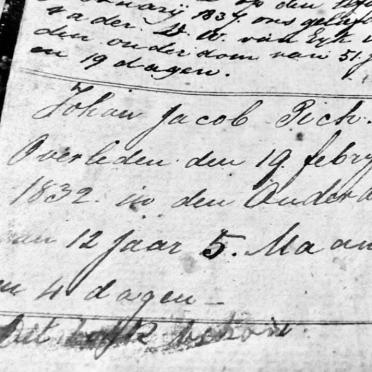 den
1837 ons
vader D. W. van
den ouderdom van 51 j
en 19 dagen.
Johan Jacob Pich
Overleden den 19 febr
1832 in den Ouderd
van 12 Jaar 5. Maan
en 4 dagen